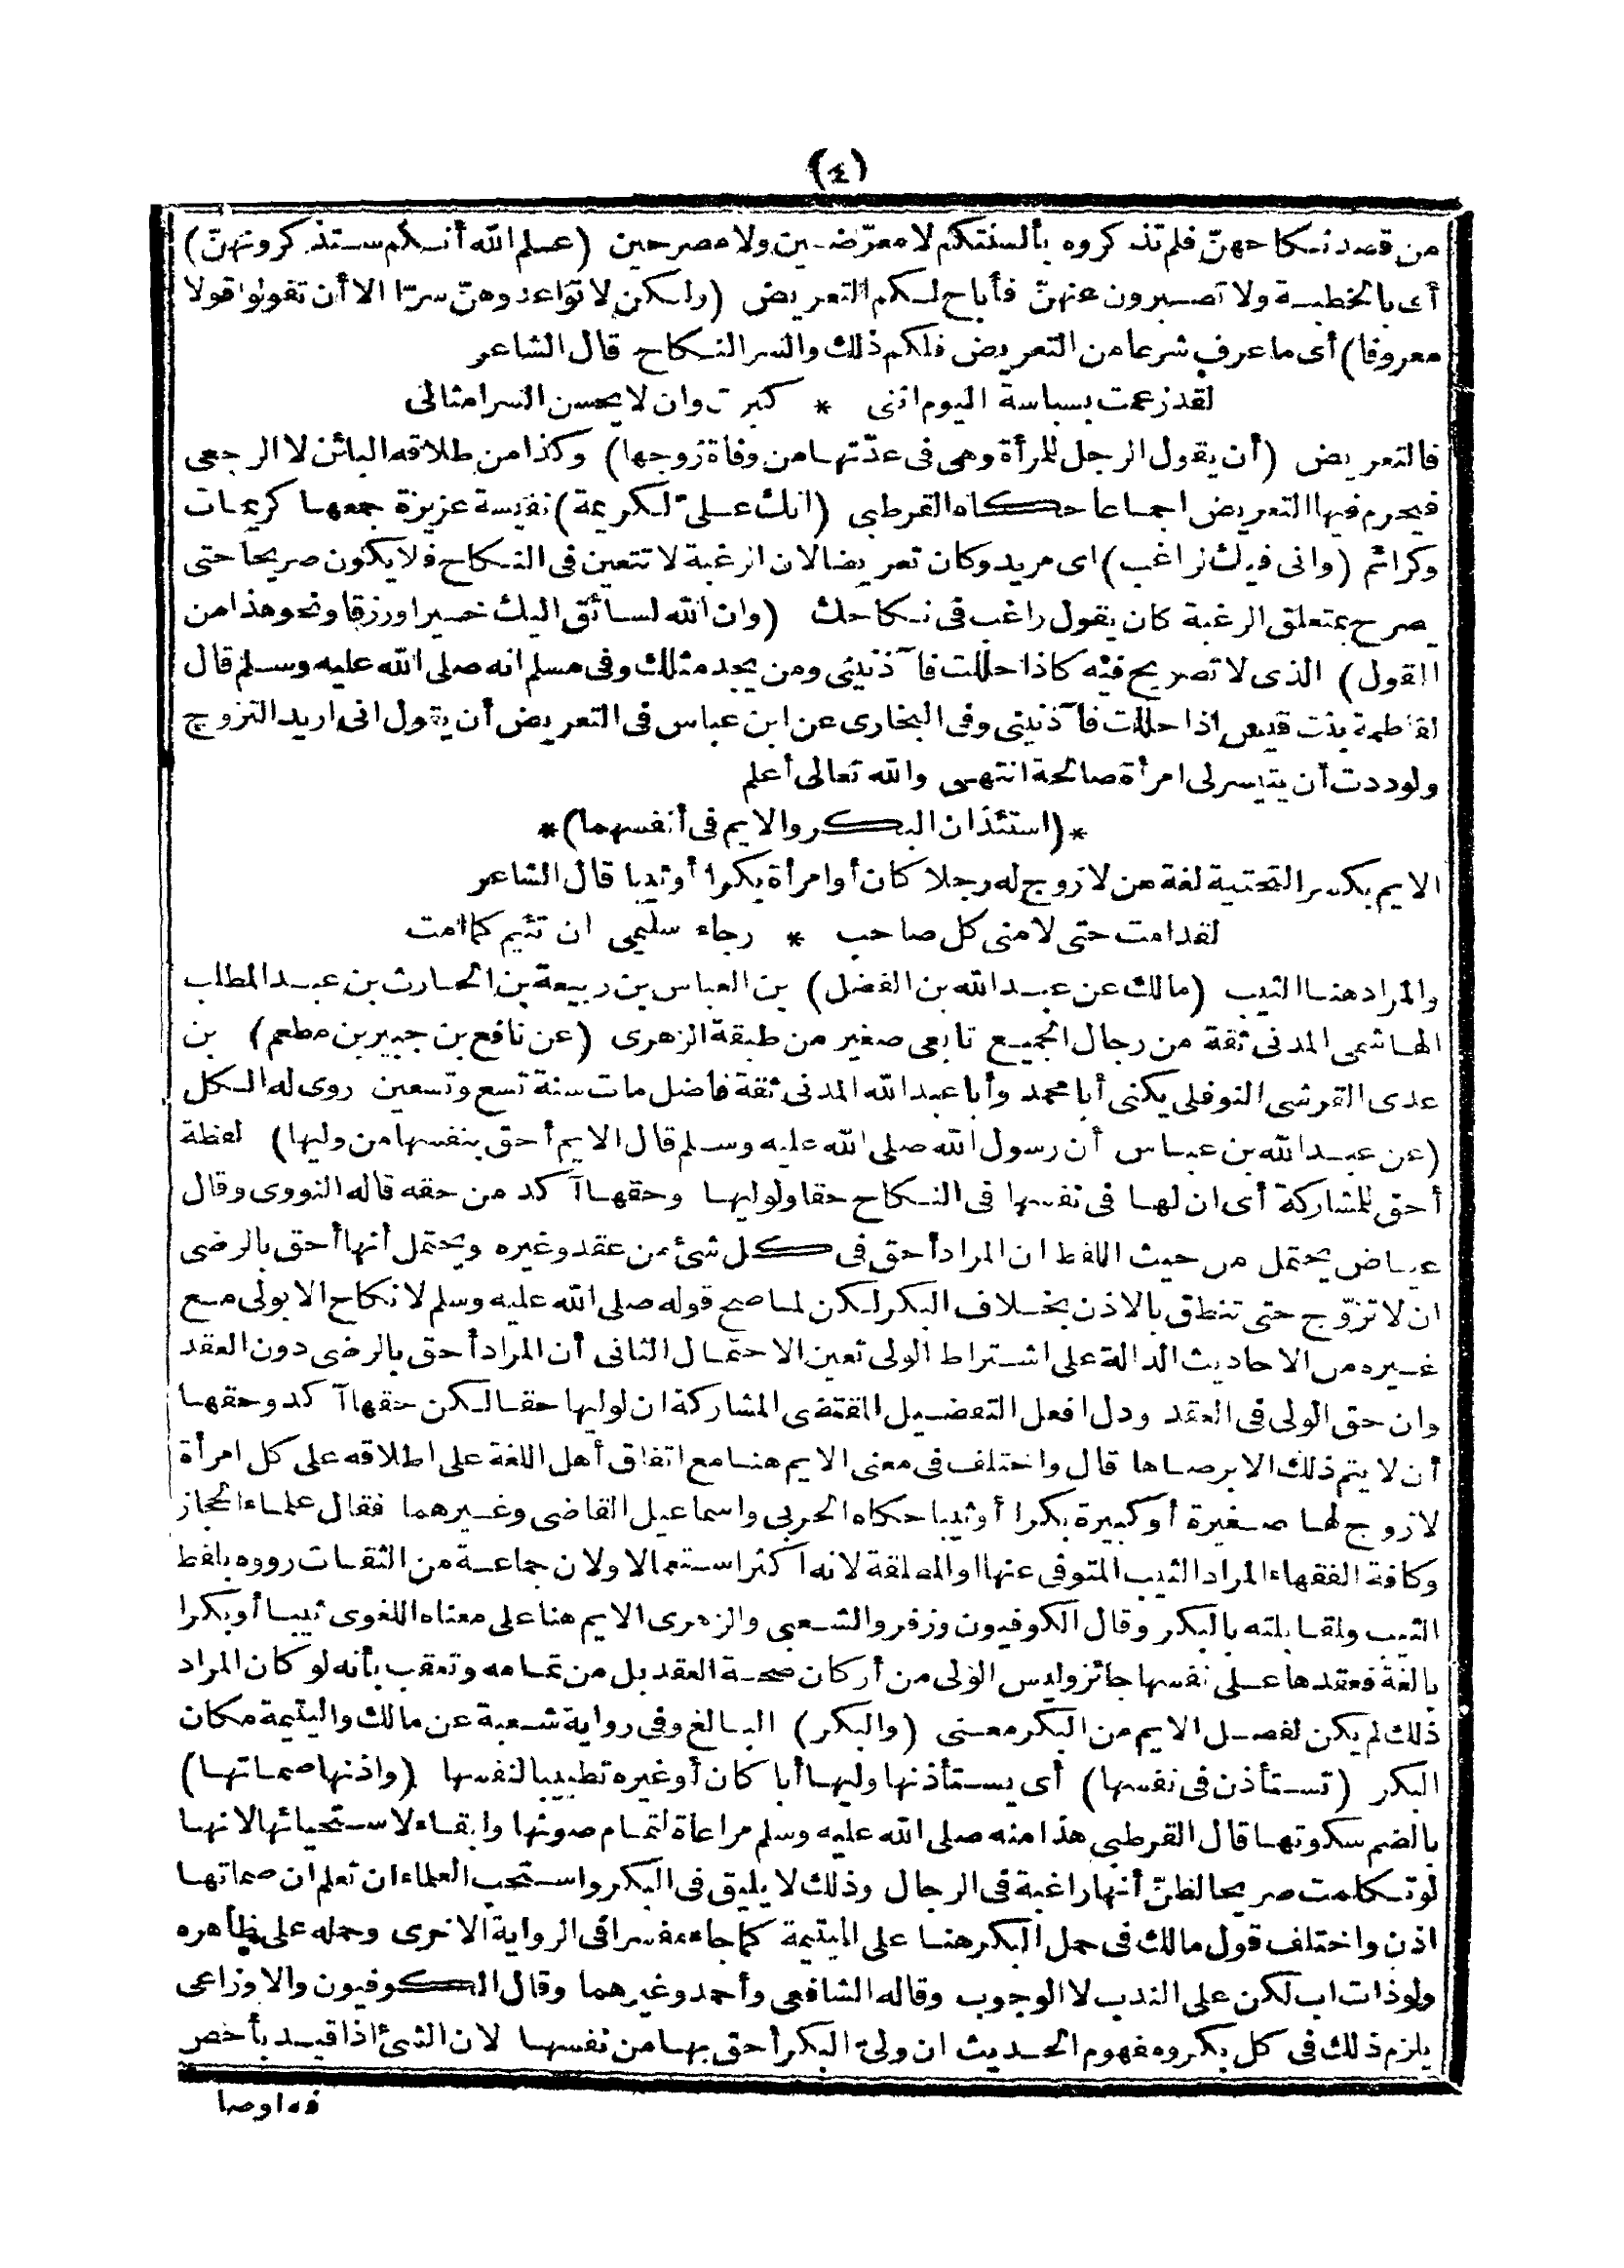 (٤)
من قصد نكاحهنّ فلم تذكروه بألسنتكم لا معرّضين ولا مصرحين (علم الله أنكم ستذكرونهنّ)
أى بالخطبة ولا تصبرون عنهنّ فأباح لكم التعريض (ولكن لا تواعدوهنّ سرّا الا أن تقولوا قولا
معروفا) أى ما عرف شرعا من التعريض فلكم ذلك والسر النكاح قال الشاعر
لقد زعمت بسباسة اليوم اننى * كبرت وان لا يحسن السر امثالى
فالتعريض (أن يقول الرجل للمرأة وهى فى عدّتها من وفاة زوجها) وكذا من طلاقه البائن لا الرجعى
فيحرم فيها التعريض اجماعا حكاه القرطبى (انك علىّ لكريمة) نفيسة عزيزة جمعها كريمات
وكرائم (وانى فيك لراغب) اى مريد وكان تعريضا لان الرغبة لا تتعين فى النكاح فلا يكون صريحا حتى
يصرح بمتعلق الرغبة كان يقول راغب فى نكاحك (وان الله لسائق اليك خيرا ورزقا ونحو هذا من
القول) الذى لا تصريح فيه كاذا حللت فآذنينى ومن يجد مثلك وفى مسلم انه صلى الله عليه وسلم قال
لفاطمة بنت قيس اذا حللت فآذنينى وفى البخارى عن ابن عباس فى التعريض أن يقول انى اريد التزوج
ولوددت أن يتيسر لى امرأة صالحة انتهى والله تعالى أعلم
*(استئذان البكر والايم فى أنفسهما)*
الايم بكسر التحتية لغة من لا زوج له رجلا كان أو امرأة بكرا أو ثيبا قال الشاعر
لقد امت حتى لامنى كل صاحب * رجاء سليمى ان تئيم كما امت
والمراد هنا الثيب (مالك عن عبد الله بن الفضل) بن العباس بن ربيعة بن الحارث بن عبد المطلب
الهاشمى المدنى ثقة من رجال الجميع تابعى صغير من طبقة الزهرى (عن نافع بن جبير بن مطعم) بن
عدى القرشى النوفلى يكنى أبا محمد وأبا عبد الله المدنى ثقة فاضل مات سنة تسع وتسعين روى له الكل
(عن عبد الله بن عباس أن رسول الله صلى الله عليه وسلم قال الايم أحق بنفسها من وليها) لفظة
أحق للمشاركة أى ان لها فى نفسها فى النكاح حقا ولوليها وحقها آكد من حقه قاله النووى وقال
عياض يحتمل من حيث اللفظ ان المراد أحق فى كل شئ من عقد وغيره ويحتمل أنها أحق بالرضى
ان لا تزوّج حتى تنطق بالاذن بخلاف البكر لكن لما صح قوله صلى الله عليه وسلم لا نكاح الا بولى مع
غيره من الاحاديث الدالة على اشتراط الولى تعين الاحتمال الثانى أن المراد أحق بالرضى دون العقد
وان حق الولى فى العقد ودل افعل التفضيل المقتضى المشاركة ان لوليها حقا لكن حقها آكد وحقها
أن لا يتم ذلك الا برضاها قال واختلف فى معنى الايم هنا مع اتفاق أهل اللغة على اطلاقه على كل امرأة
لا زوج لها صغيرة أو كبيرة بكرا أو ثيبا حكاه الحربى واسماعيل القاضى وغيرهما فقال علماء الحجاز
وكافة الفقهاء المراد الثيب المتوفى عنها او المطلقة لانه اكثر استعمالا ولان جماعة من الثقات رووه بلفظ
الثيب ولمقابلته بالبكر وقال الكوفيون وزفر والشعبى والزهرى الايم هنا على معناه اللغوى ثيبا أو بكرا
بالغة فعقدها على نفسها جائز وليس الولى من أركان صحة العقد بل من تمامه وتعقب بأنه لو كان المراد
ذلك لم يكن لفصل الايم من البكر معنى (والبكر) البالغ وفى رواية شعبة عن مالك واليتيمة مكان
البكر (تستأذن فى نفسها) أى يستأذنها وليها أبا كان أو غيره تطييبا لنفسها (واذنها صماتها)
بالضم سكوتها قال القرطبى هذا منه صلى الله عليه وسلم مراعاة لتمام صونها وابقاء لاستحيائها لانها
لو تكلمت صريحا لظنّ أنها راغبة فى الرجال وذلك لا يليق فى البكر واستحب العلماء ان تعلم ان صماتها
اذن واختلف قول مالك فى حمل البكر هنا على اليتيمة كما جاء مفسرا فى الرواية الاخرى وحمله على ظاهره
ولو ذات اب لكن على الندب لا الوجوب وقاله الشافعى وأحمد وغيرهما وقال الكوفيون والاوزاعى
يلزم ذلك فى كل بكر ومفهوم الحديث ان ولىّ البكر أحق بها من نفسها لان الشئ اذا قيد بأخص